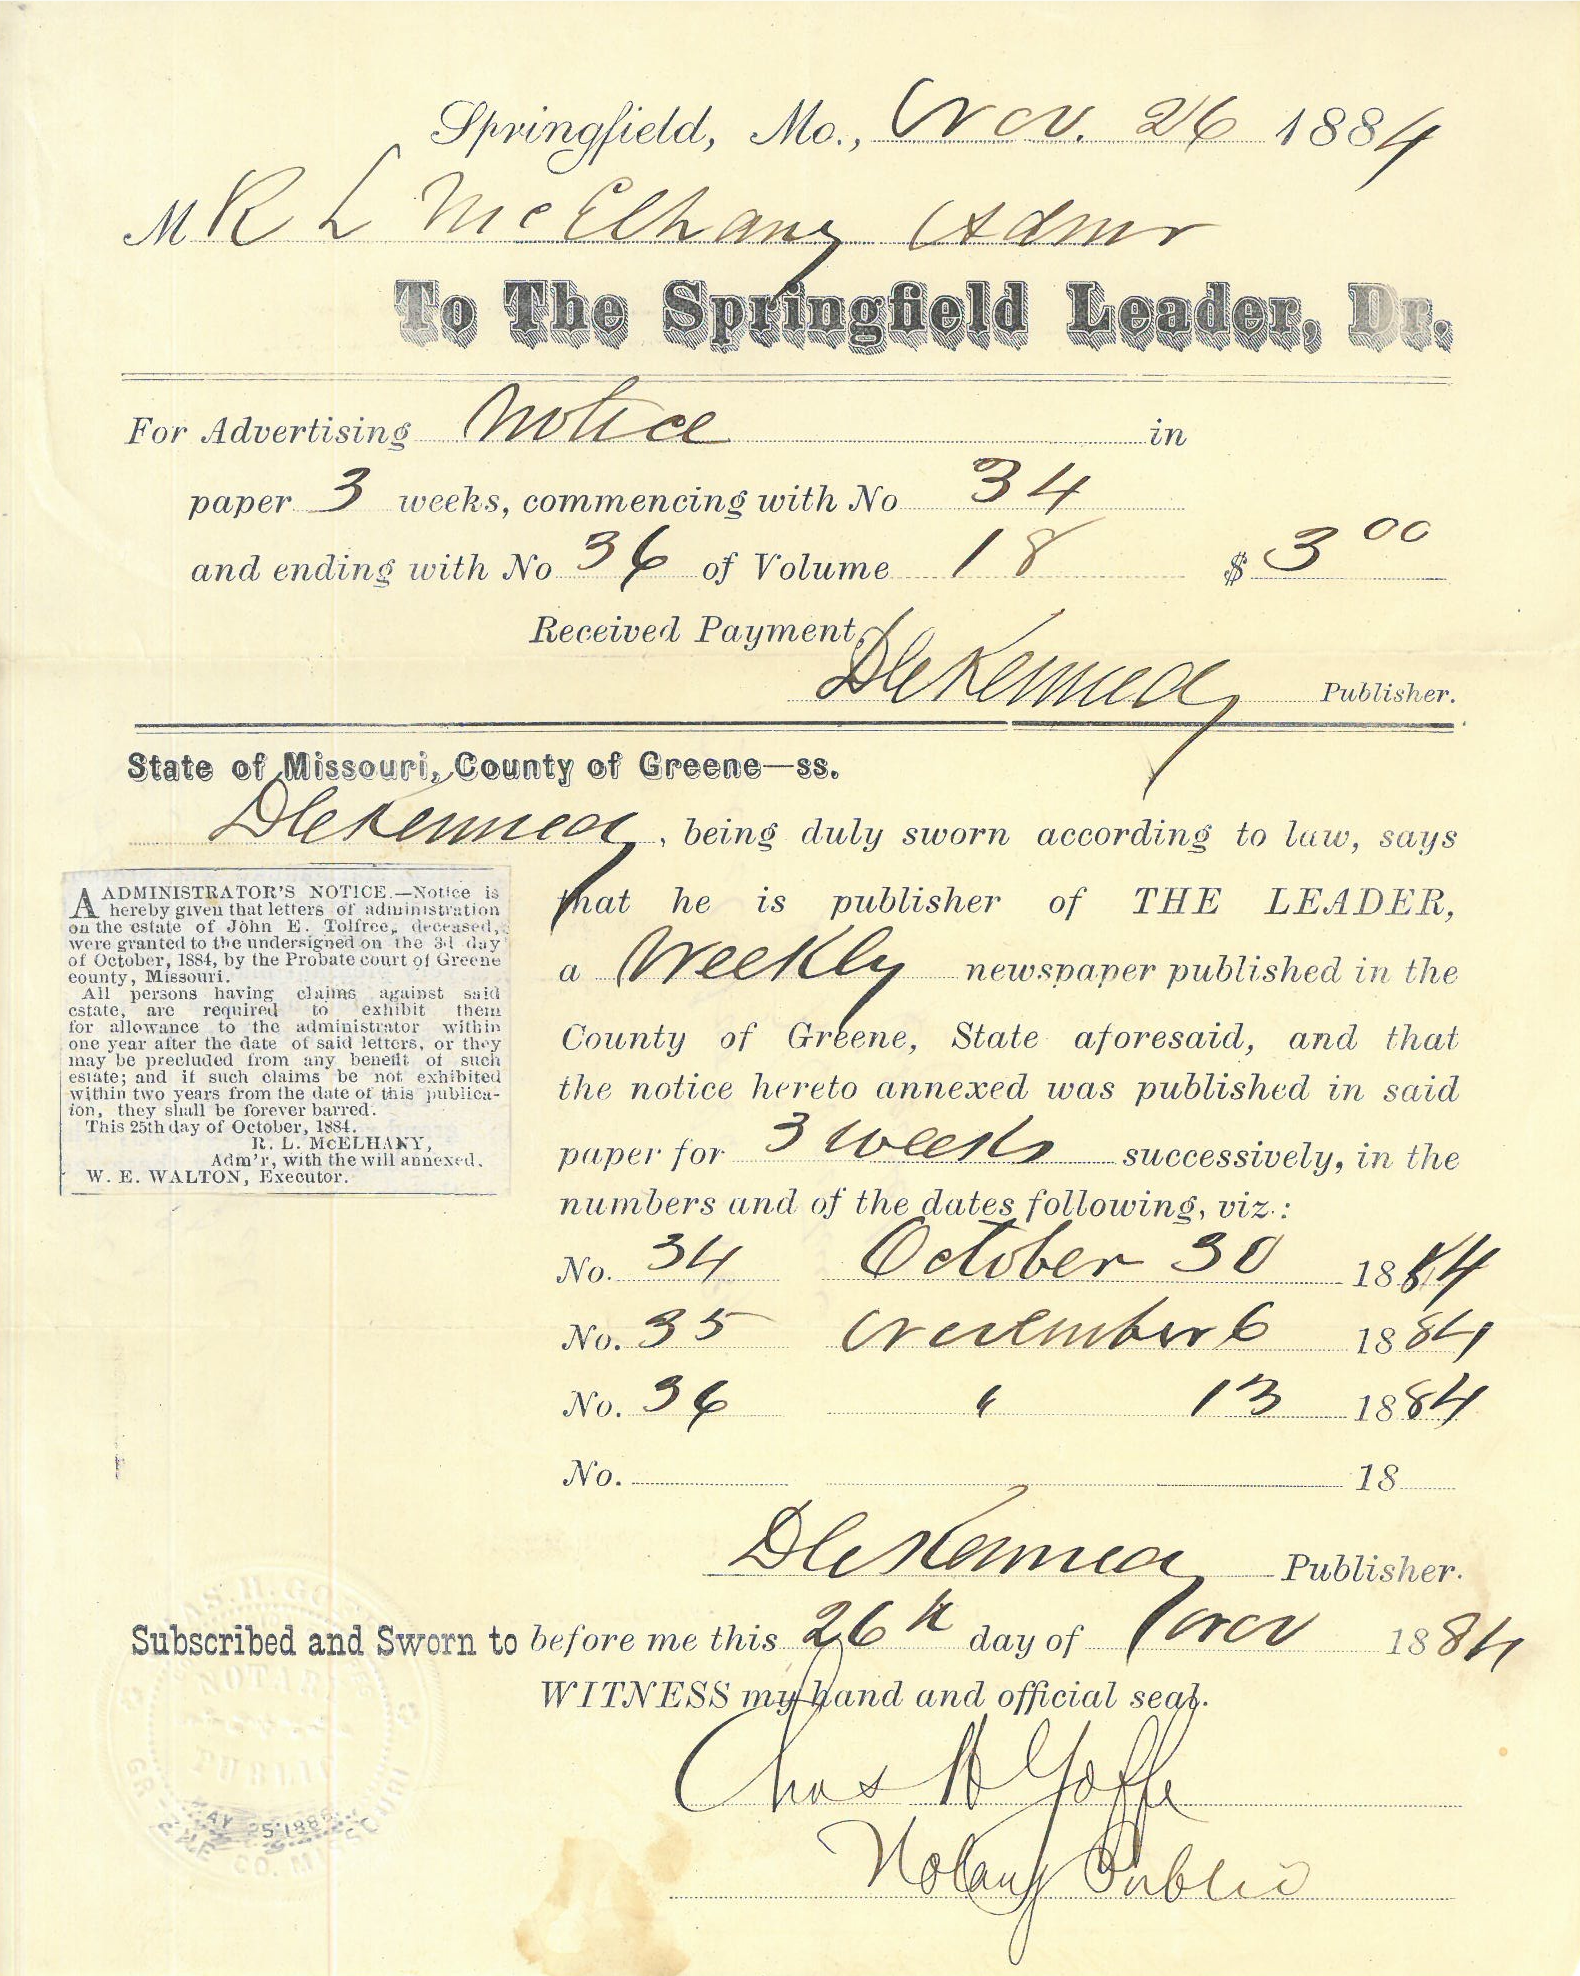 Springfield, Mo., Nov. 26 1884
M R L McElhany Admr
To The Springfield Leader, Dr.
For Advertising Notice in
paper 3 weeks, commencing with No 34
and ending with No 36 of Volume 18 $ 3 00
Received Payment,
D C Kennedy Publisher.
State of Missouri, County of Greene—ss.
D C Kennedy, being duly sworn according to law, says
that he is publisher of THE LEADER,
a Weekly newspaper published in the
County of Greene, State aforesaid, and that
the notice hereto annexed was published in said
paper for 3 weeks successively, in the
numbers and of the dates following, viz.:
ADMINISTRATOR'S NOTICE.—Notice is
hereby given that letters of administration
on the estate of John E. Tolfree, deceased,
were granted to the undersigned on the 3d day
of October, 1884, by the Probate court of Greene
county, Missouri.
All persons having claims against said
estate, are required to exhibit them
for allowance to the administrator within
one year after the date of said letters, or they
may be precluded from any benefit of such
estate; and if such claims be not exhibited
within two years from the date of this publica-
tion, they shall be forever barred.
This 25th day of October, 1884.
R. L. McELHANY,
Adm'r, with the will annexed.
W. E. WALTON, Executor.
No. 34 October 30 1884
No. 35 November 6 1884
No. 36 " 13 1884
No. 18
D C Kennedy Publisher.
Subscribed and Sworn to before me this 26th day of Nov 1884
WITNESS my hand and official seal.
Chas H Goffe
Notary Public
NOTARY
PUBLIC